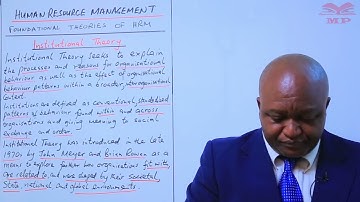 HUMAN RESOURCE MANAGEMENT
FOUNDATIONAL THEORIES OF HRM
Institutional Theory
Institutional Theory seeks to explain
the processes and reasons for organisational
behaviour as well as the effect of organisational
behaviour patterns within a broader, interorganisational
context.
Institutions are defined as conventional, standardised
patterns of behaviour found within and across
organisations and giving meaning to social
exchange and order.
Institutional Theory was introduced in the late
1970s by John Meyer and Brian Rowan as a
means to explore further how organisations fit with,
are related to, and were shaped by their societal,
state, national and global environments.
MP